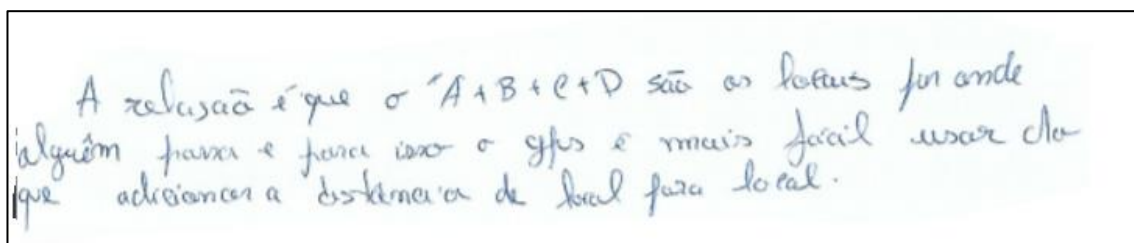 A relasaõ é que o A+B+C+D são os locais por onde
alguêm passa e para isso o gps é mais fácil usar do
que adicionar a distância de local para local.